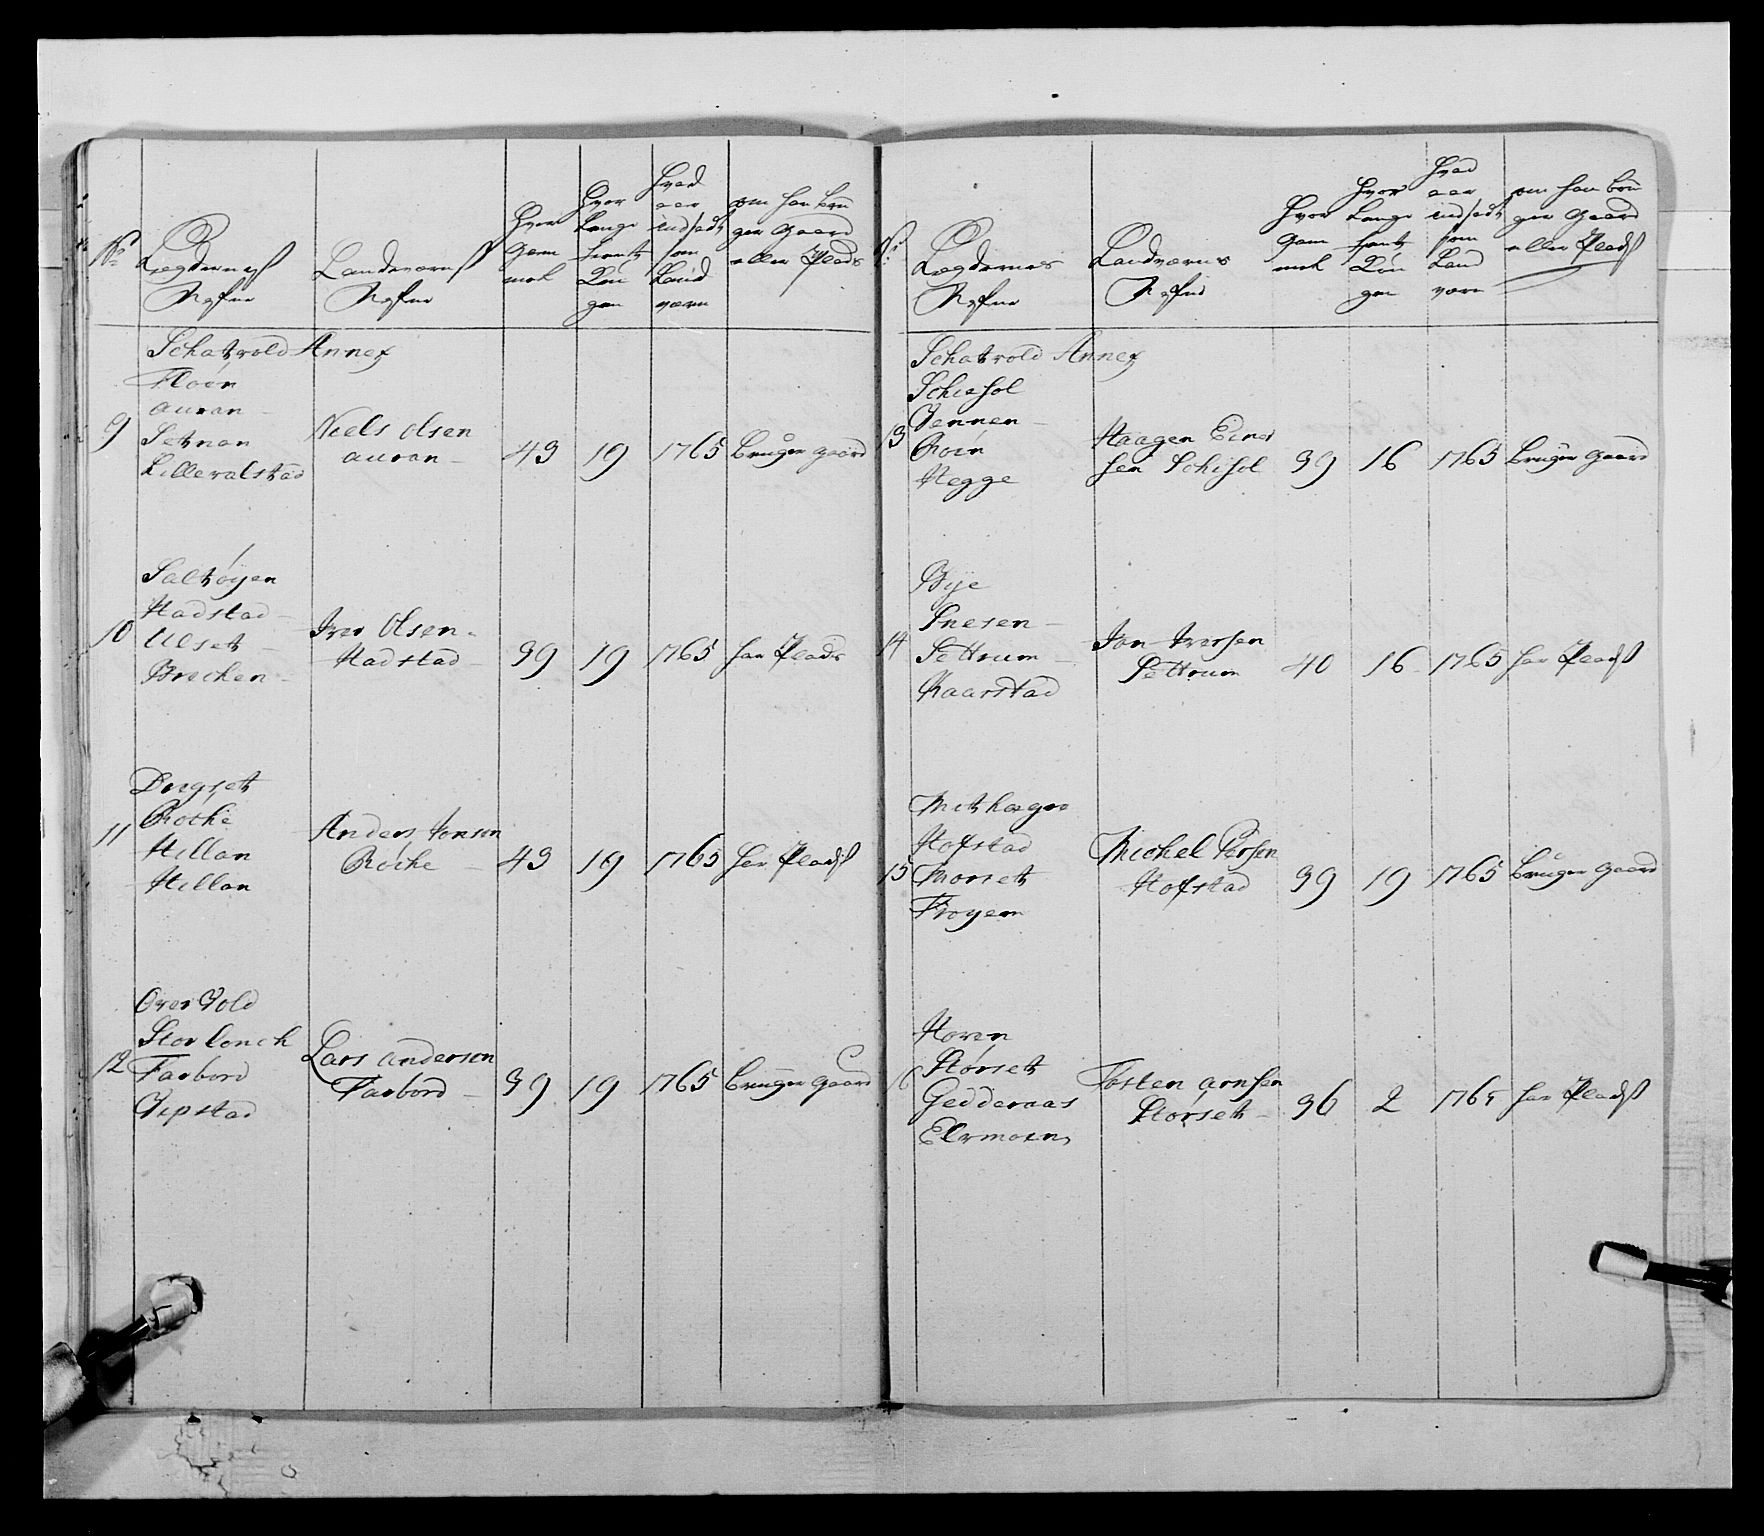 No
Lægdernes
Nafne
Landeværns
Nafne
Hvor
Gam
mel
Hvor
Lenge
tient
Kon
gen
Hvad
aar
indsadt
som
Land
værn
om han bru
ger Gaard
eller Plads
Schatvold Annex
Floen
auran
9 Setnan
Lilleralstad
Niels Olsen
auran
43 19 1765 bruger gaard
Saltøyen
Hadstad
10 Ulset
Brecken
Iver Olsen
Hadstad
39 19 1765 har Plads
Dregset
Rothe
11 Hillan
Hillan
Anders Jonsen
Röthe
43 19 1765 har Plads
Over Vold
Storlonch
12 Farbord
Vepstad
Lars andersen
Farbord
39 19 1765 bruger gaard
No
Lægdernes
Nafne
Landværnes
Nafne
Hvor
Gam
mel
Hvor
Lenge
tient
Kon
gen
Hvad
aar
indsadt
som
Land
værn
om han bru
ger Gaard
eller Plads
Schatvold Annex
Schiehol
Vennen
13 Roin
Hegge
Haagen Einer
sen Schihol
39 16 1765 bruger gaard
Bye
Præsen
14 Settrum
Raarstad
Jon Iversen
Settrum
40 16 1765 har Plads
Hofstad
15 Morset
Froyem
Michel Persen
Hofstad
39 19 1765 bruger gaard
Hoven
16 Størset
Gedderaas
Elvmoen
Tosten arnsen
Størset
36 2 1765 har Plads